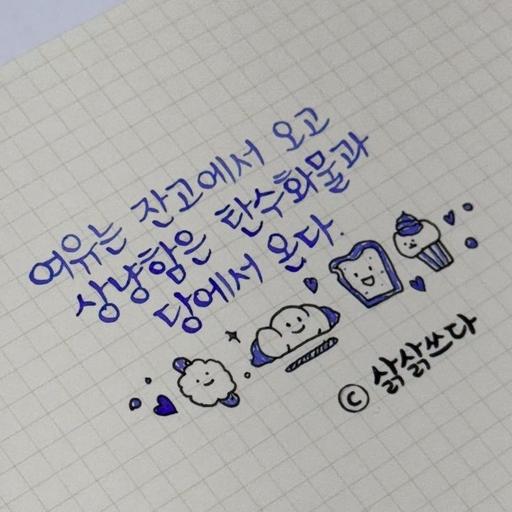 여유는 잔고에서 오고
상냥함은 탄수화물과
당에서 온다.
© 삵삵쓰다